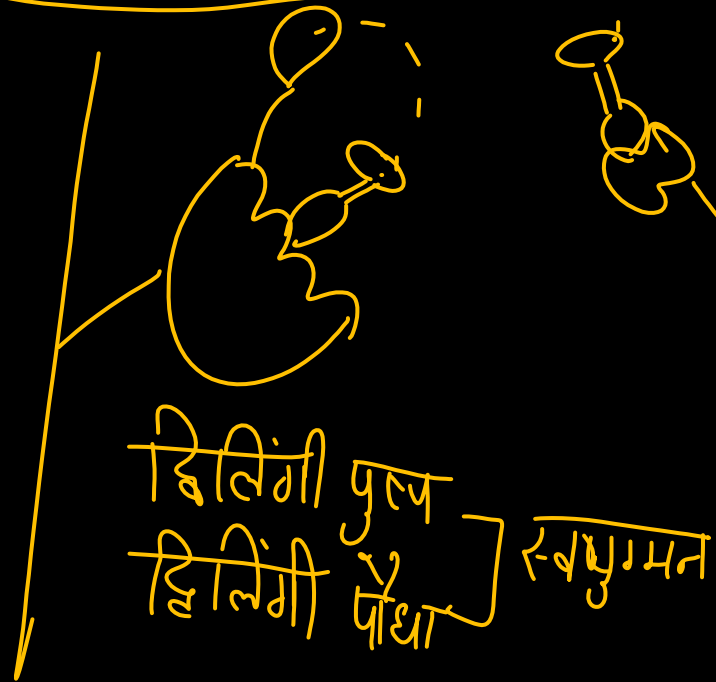 द्विलिंगी पुष्प
द्विलिंगी पौधा
स्वयुग्मन